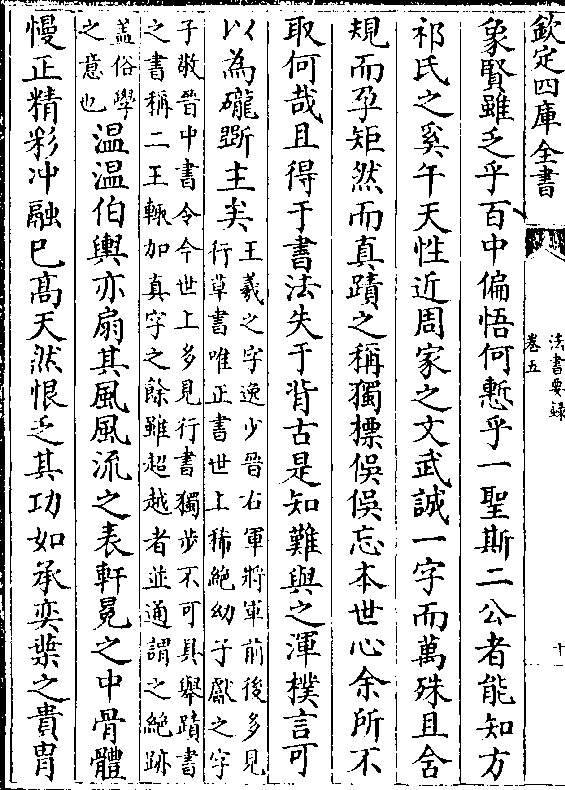 欽定四庫全書
法書要録
卷五
十
象賢雖乏乎百中偏悟何慙乎一聖斯二公者能知方
祁氏之奚午天性近周家之文武誠一字而萬殊且含
規而孕矩然而真蹟之稱獨標俁俁忘本世心余所不
取何哉且得于書法失于背古是知難與之渾樸言可
以為礲斵主矣
王羲之字逸少晉右軍將軍前後多見
行草書唯正書世上稀絶幼子獻之字
子敬晉中書令今世上多見行書獨步不可具舉蹟書
之書稱二王輙加真字之餘雖超越者並通謂之絶跡
蓋俗學
之意也
温温伯輿亦扇其風風流之表軒冕之中骨體
慢正精彩冲融已高天然恨乏其功如承奕葉之貴胄